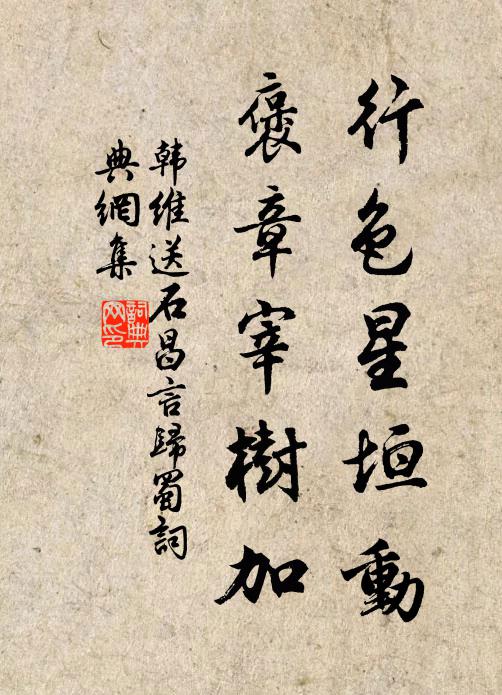 行色星垣動
褒章宰樹加
韩維送石昌言歸蜀詞
典網集
詞典網印